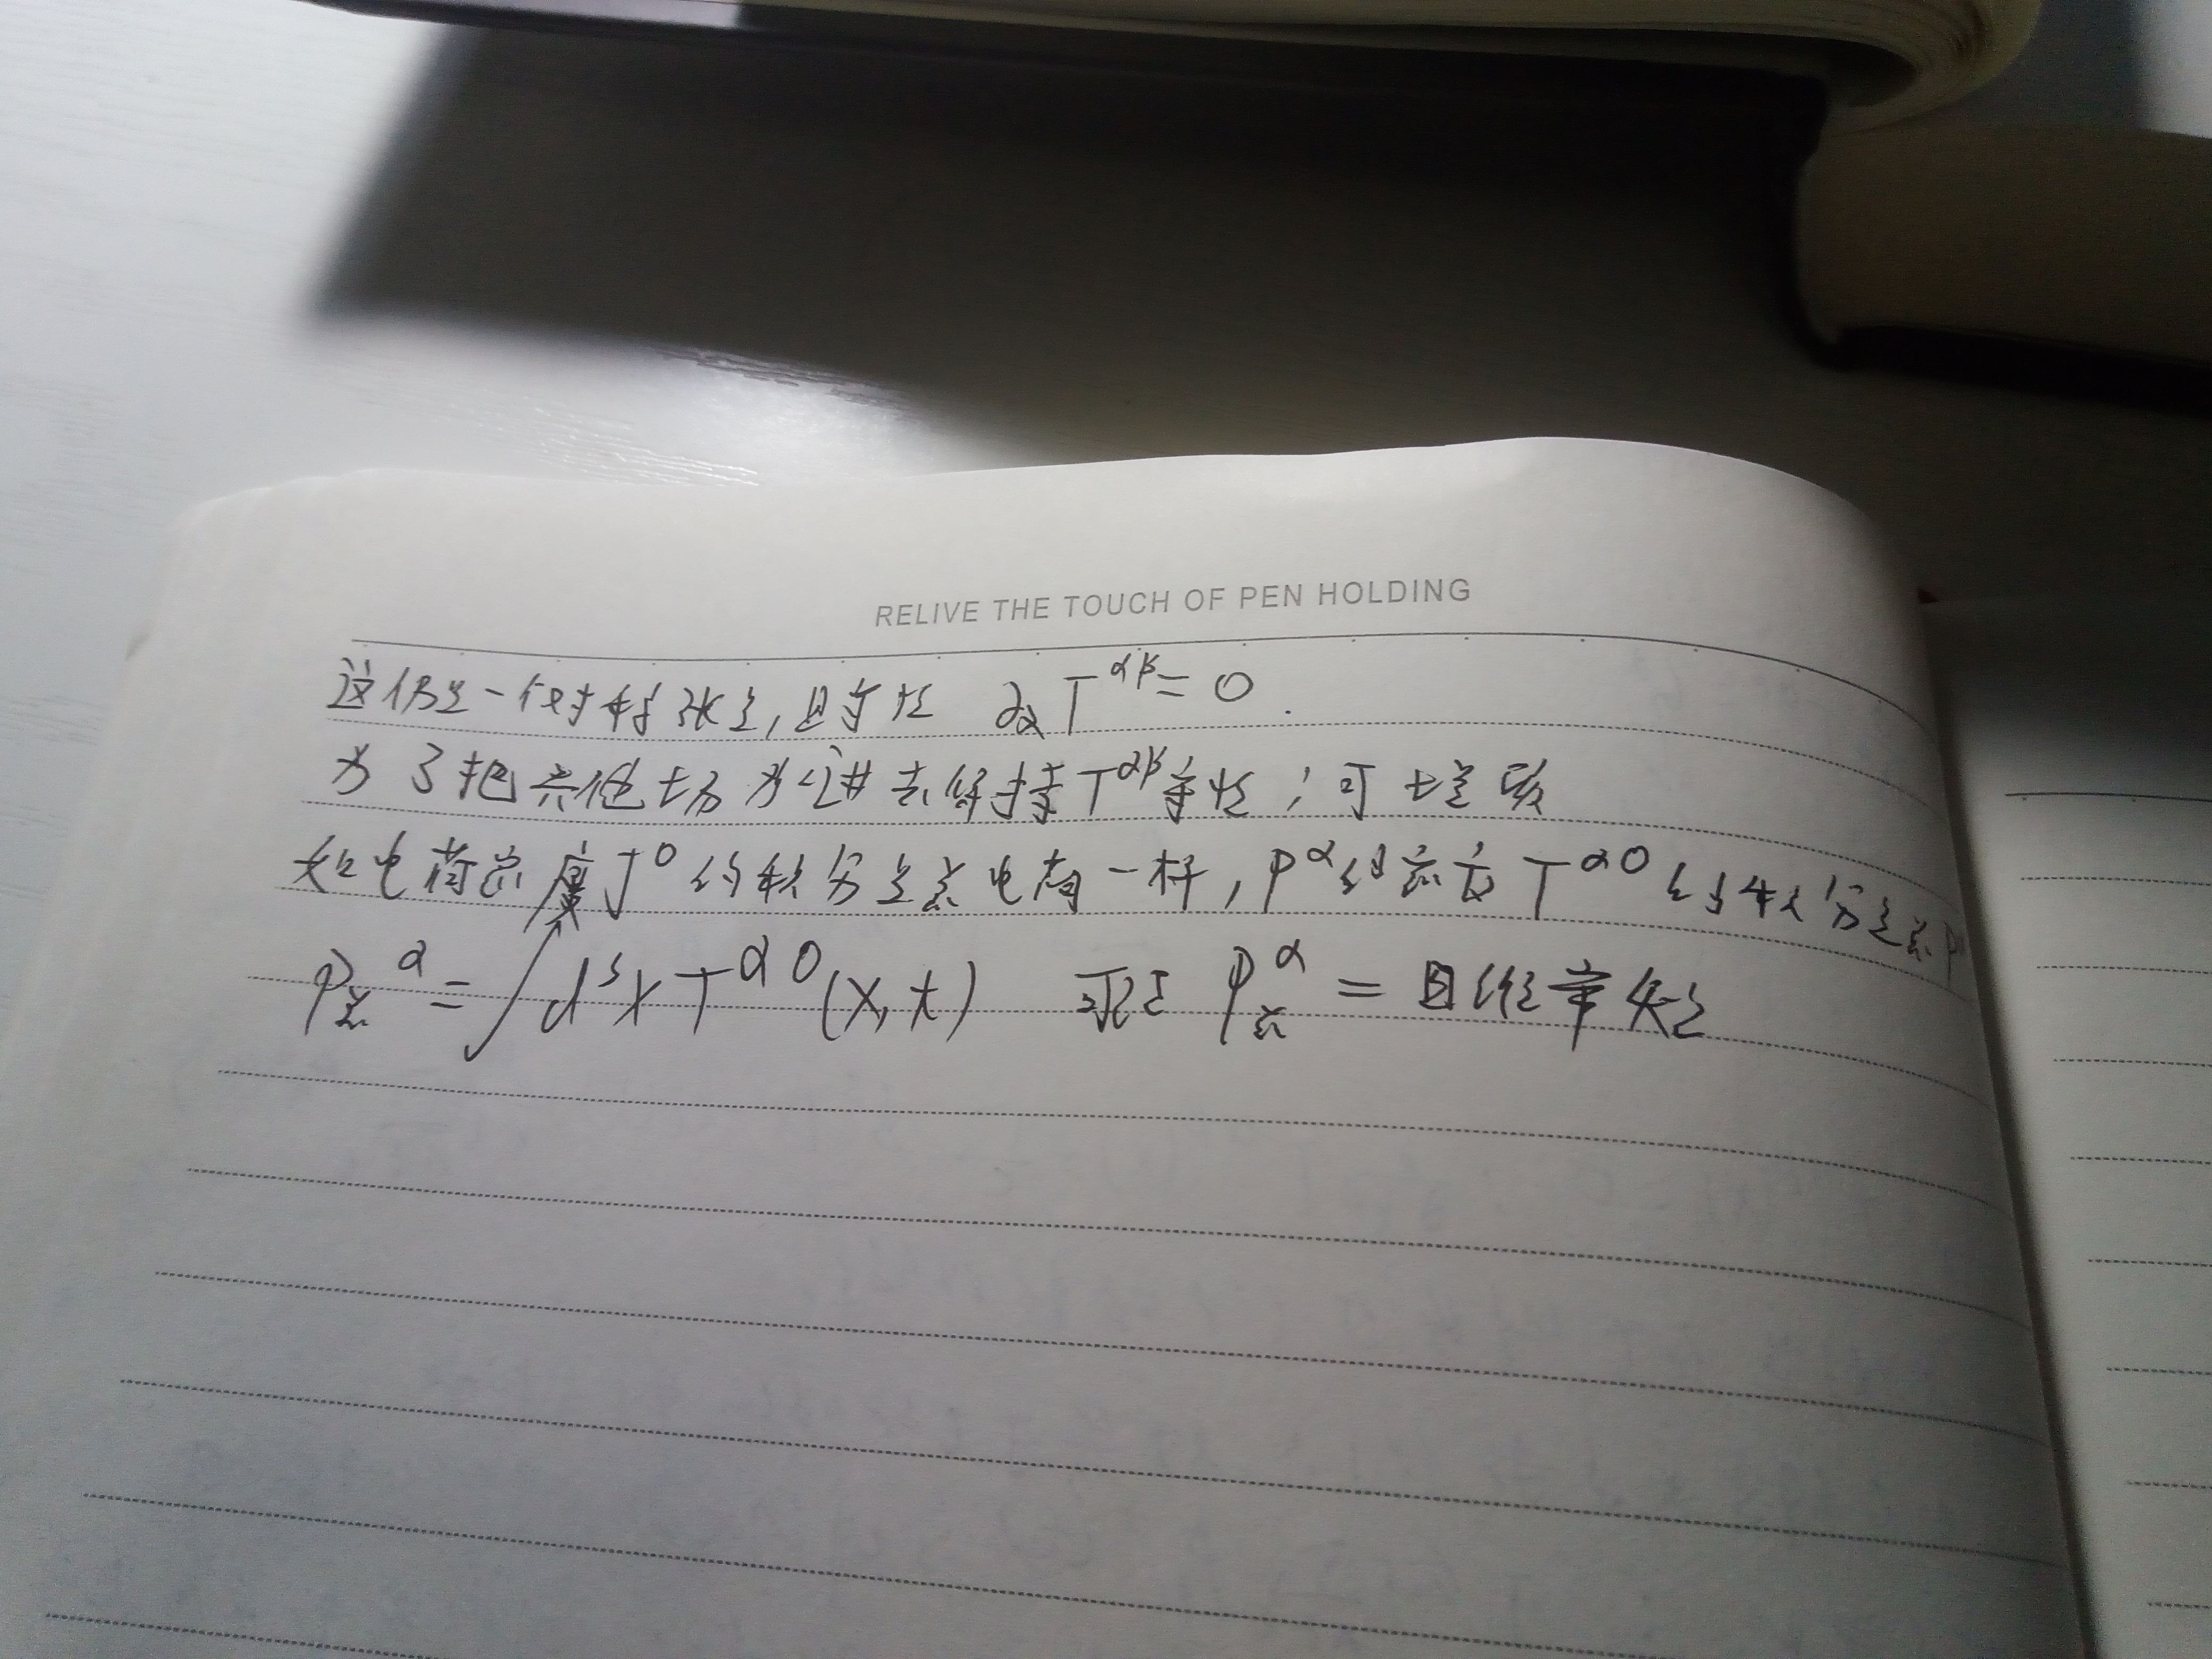 RELIVE THE TOUCH OF PEN HOLDING
这仍是一个对称张量,且守恒 ∂αT^αβ = 0.
为了把其他场加进去保持T^αβ守恒,可
如电荷密度J^0的积分是总电荷一样,P^α的密度T^α0的积分是总P^α
P总^α = ∫d³xT^α0(x,t) 可证 P总^α = 四维守矢量